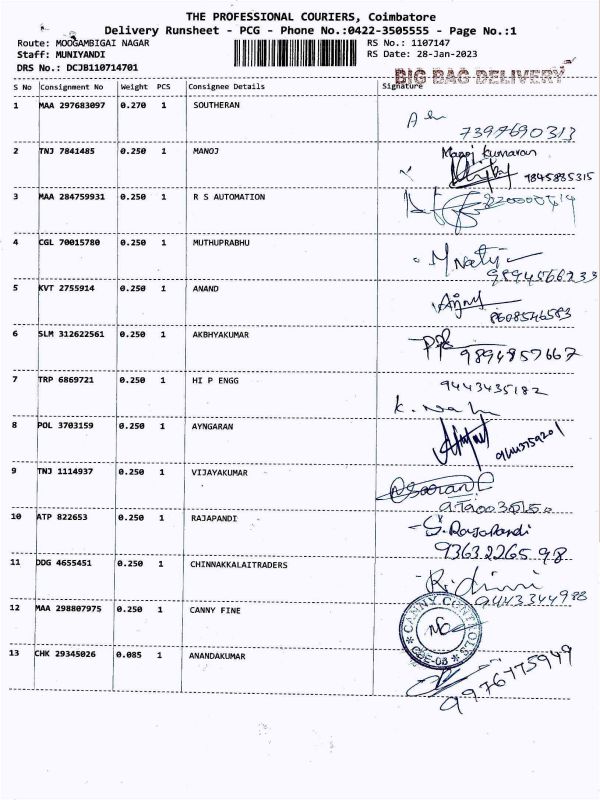 THE PROFESSIONAL COURIERS, Coimbatore
Delivery Runsheet - PCG - Phone No.:0422-3505555 - Page No.:1
Route: MOOGAMBIGAI NAGAR RS No.: 1107147
Staff: MUNIYANDI RS Date: 28-Jan-2023
DRS No.: DCJB110714701
BIG BAG DELIVERY
S No Consignment No Weight PCS Consignee Details Signature
1 MAA 297683097 0.270 1 SOUTHERAN
7397690313
2 TNJ 7841485 0.250 1 MANOJ Manoj kumaran
9845885315
3 MAA 284759931 0.250 1 R S AUTOMATION
4 CGL 70015780 0.250 1 MUTHUPRABHU
9894566233
5 KVT 2755914 0.250 1 ANAND
8608546583
6 SLM 312622561 0.250 1 AKBHYAKUMAR
9894857667
7 TRP 6869721 0.250 1 HI P ENGG 9443435182
8 POL 3703159 0.250 1 AYNGARAN
9 TNJ 1114937 0.250 1 VIJAYAKUMAR
10 ATP 822653 0.250 1 RAJAPANDI S. RajaPandi
9363226598
11 DDG 4655451 0.250 1 CHINNAKKALAITRADERS
9443344988
12 MAA 298807975 0.250 1 CANNY FINE
CANNY CONTROLS
13 CHK 29345026 0.085 1 ANANDAKUMAR
9976775949